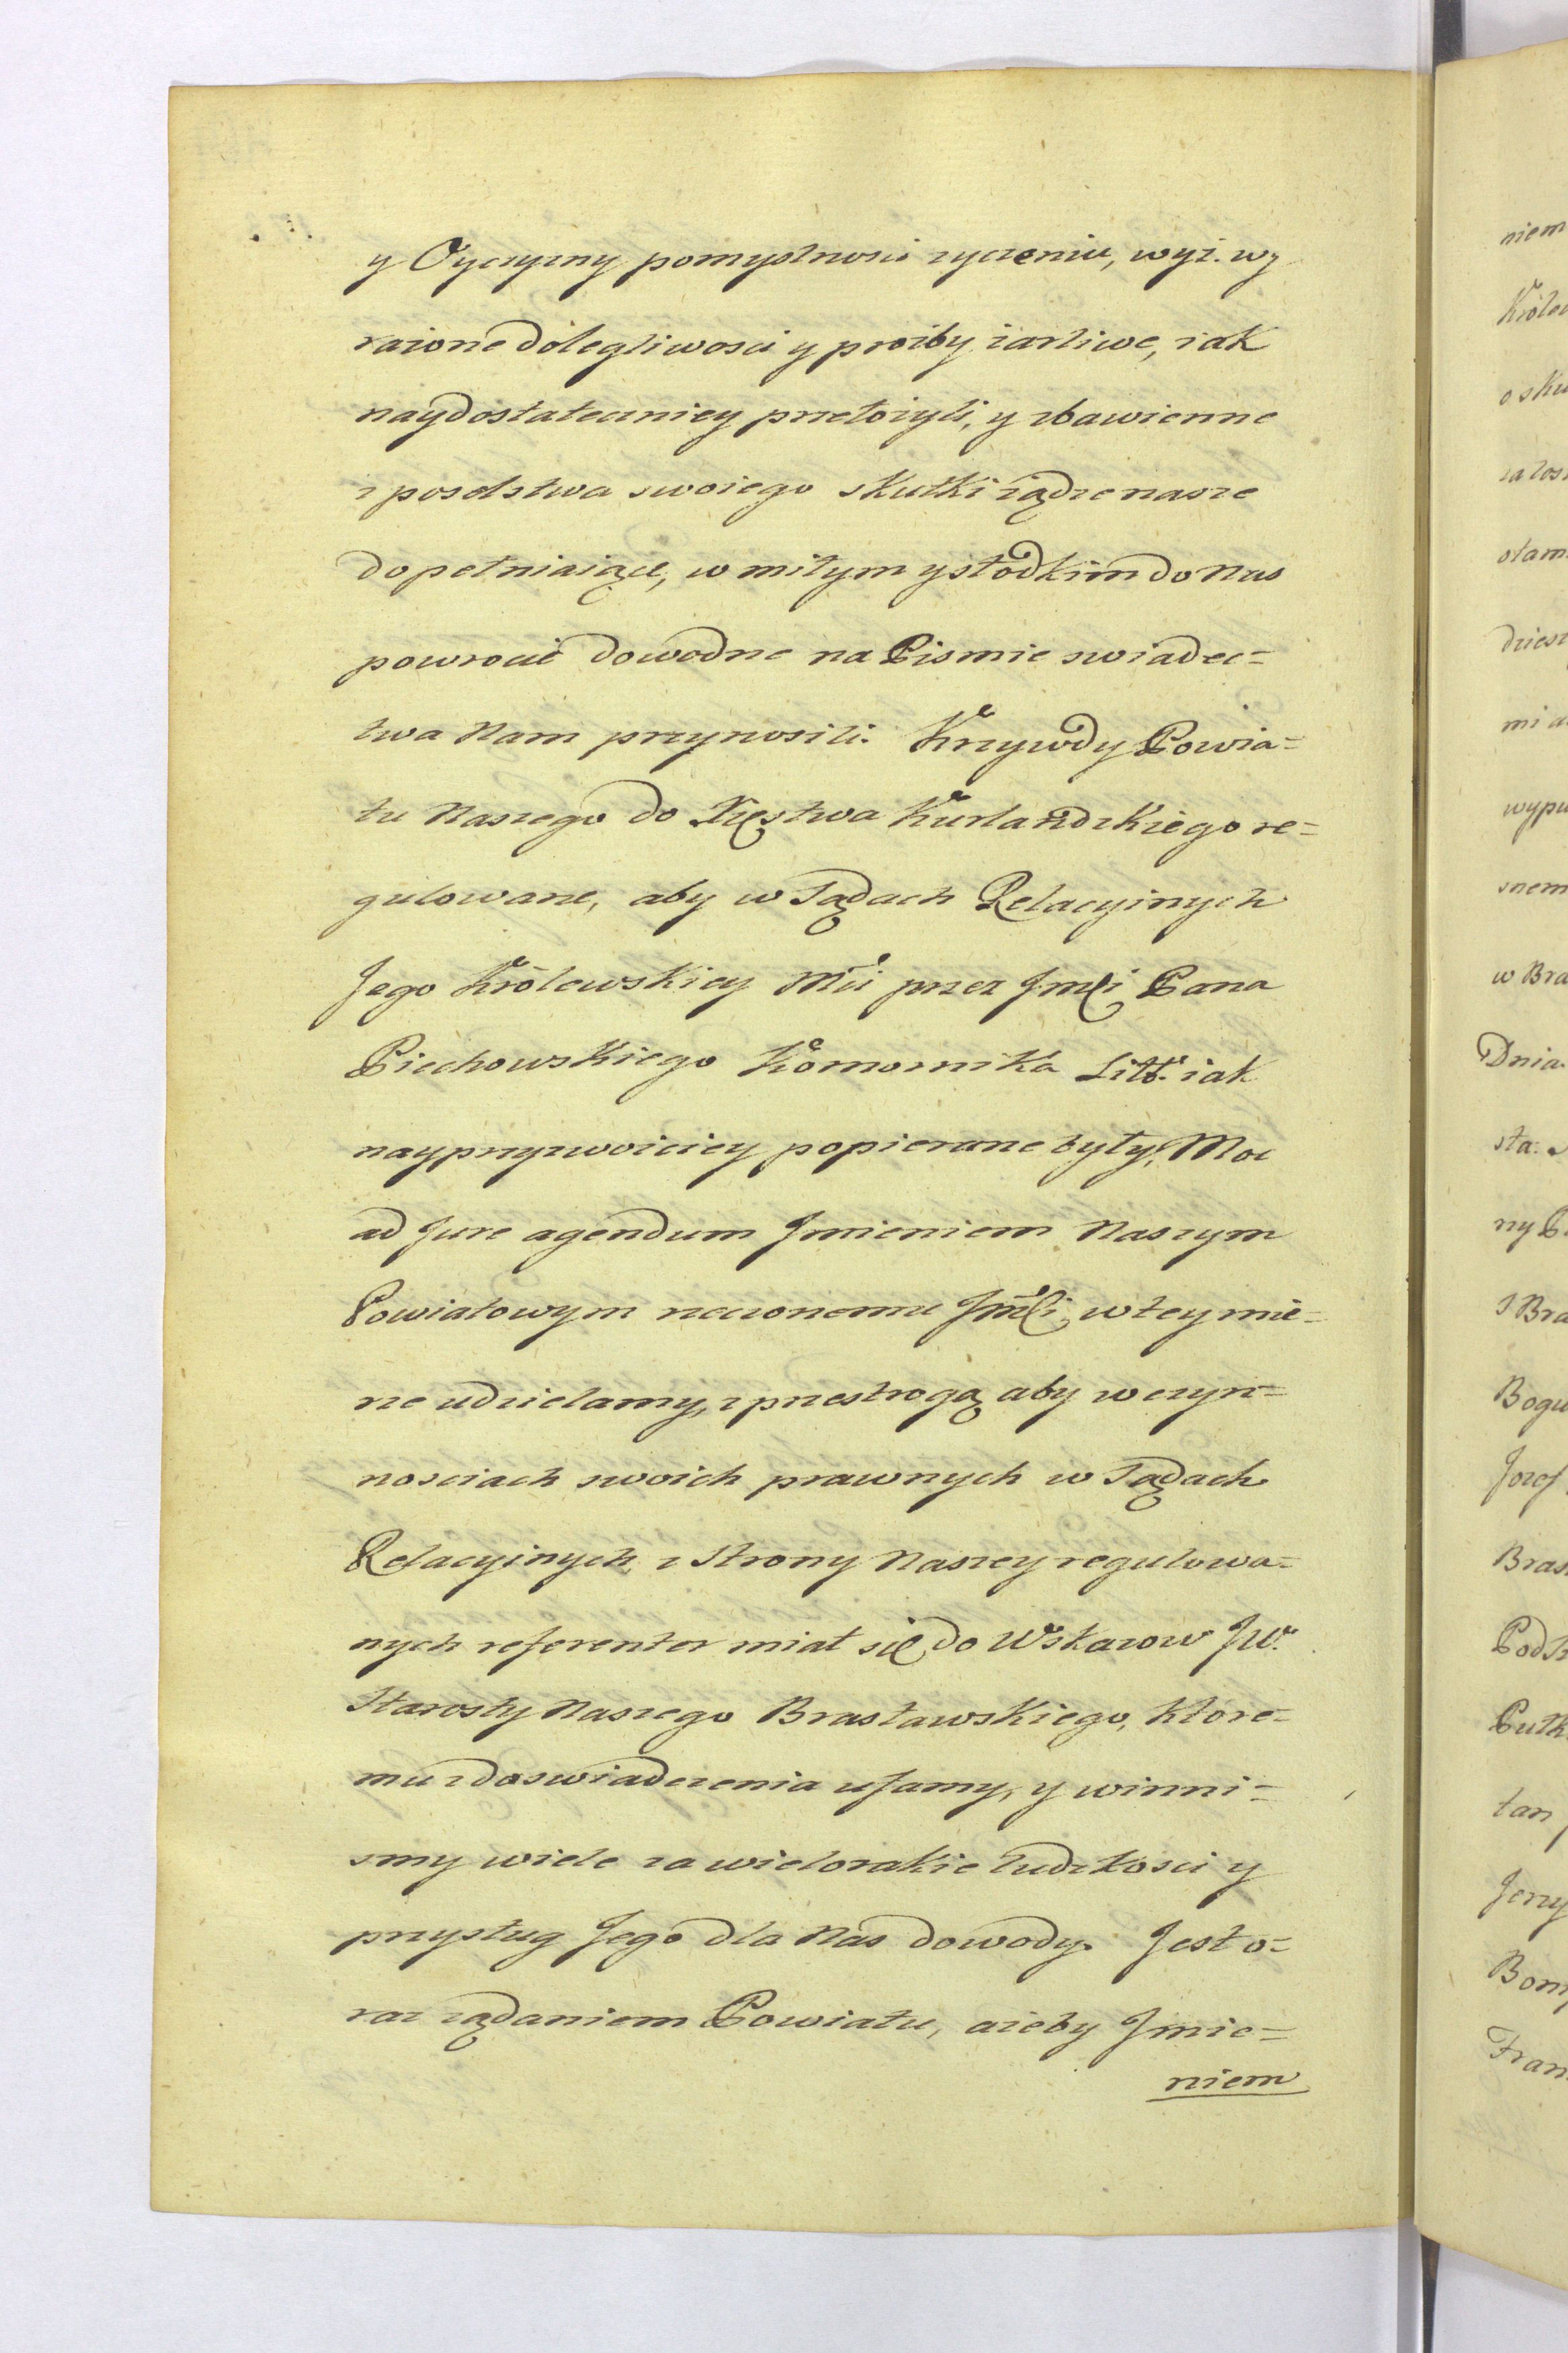 y Oyczyzny pomyslnosci zyczeniu, wyż. wy
rażone dolegliwosci y prożby żarliwe, iak
naydostateczniey przełożyli, y zbawienne
z poselstwa swoiego skutki żądze nasze
dopełniaiące, w miłym y słodkim do Nas
powrocie dowodne na Pismie swiadec=
twa Nam przynosili. Krzywdy Powia=
tu Naszego do Xięstwa Kurlandzkiego re=
gulowane, aby w Sądach Relacyinych
Jego Królewskiey Mci przez Jmci Pana
Piechowskiego Komornika Litt. iak
nayprzyzwoiciey popierane były, Moc
ad Jure agendum Jmieniem Naszym
Powiatowym rzeczonemu Jmci, w tey mie=
rze udzielamy, z przestrogą aby w czyn=
nosciach swoich prawnych w Sądach
Relacyinych, z Strony Naszey regulowa=
nych referentor miał się do Wskazow JW.
Starosty Naszego Brasławskiego, ktore=
mu z doswiadczenia ufamy, y winni=
smy wiele za wielorakie ludzkosci y
przysług Jego dla Nas dowody. Jest o=
raz żądaniem Powiatu, ażeby Jmie=
niem
niem
Królew
o sku
ołam
dzies
mi a
wypu
snem
w Bra
Dnia
sta:
ny P
J Bra
Bogu
Jozef
Bras
Podk
Putk
tan
Jerzy
Bom
Fran